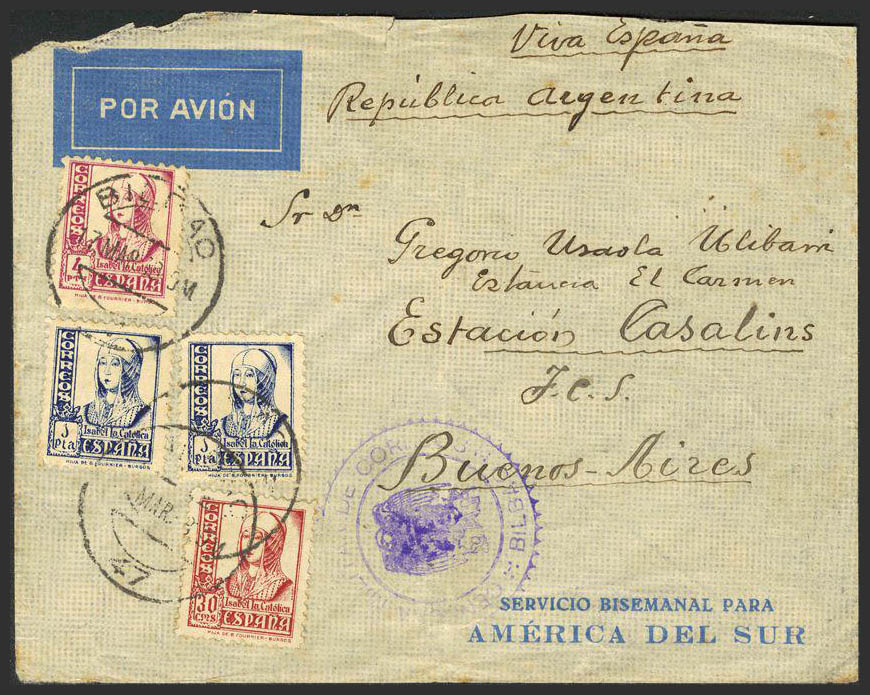 Viva España
República Argentina
POR AVIÓN
Sr Dn
Gregorio Usaola Ulibarri
Estancia El Carmen
Estación Casalins
F.C.S.
Buenos-Aires
CORREOS
4 PTAS
Isabel la Católica
ESPAÑA
HIJA DE B. FOURNIER-BURGOS
BILBAO
MAR
CORREOS
1 Pta
Isabel la Católica
ESPAÑA
HIJA DE B. FOURNIER-BURGOS
CORREOS
1 Pta
Isabel la Católica
ESPAÑA
HIJA DE B. FOURNIER-BURGOS
MAR
CORREOS
30 cms
Isabel la Católica
ESPAÑA
HIJA DE B. FOURNIER-BURGOS
DE
BILBAO
SERVICIO BISEMANAL PARA
AMÉRICA DEL SUR